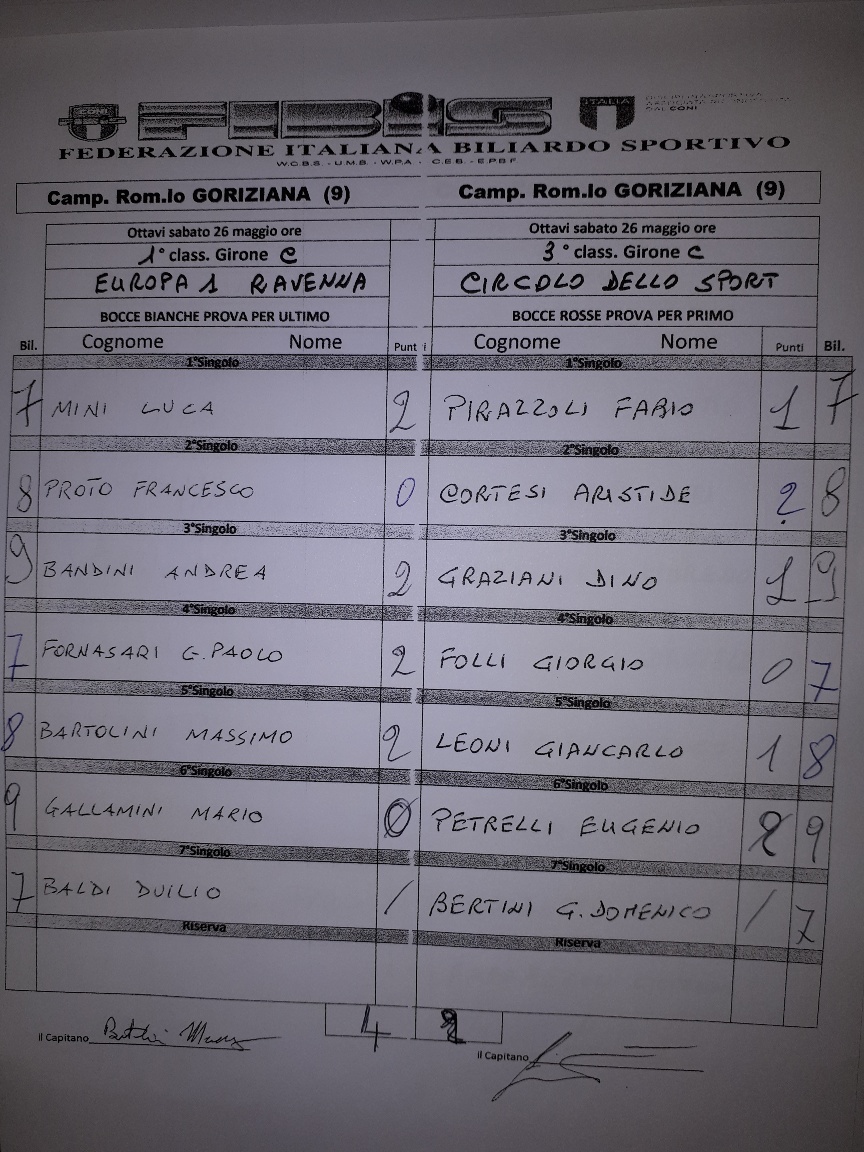 FIBiS
ITALIA
FEDERAZIONE ITALIANA BILIARDO SPORTIVO
W.C.B.S. - U.M.B. - W.P.A. - C.E.B. - E.P.B.F
Camp. Rom.lo GORIZIANA (9) Camp. Rom.lo GORIZIANA (9)
Ottavi sabato 26 maggio ore Ottavi sabato 26 maggio ore
1° class. Girone C 3° class. Girone C
EUROPA 1 RAVENNA CIRCOLO DELLO SPORT
BOCCE BIANCHE PROVA PER ULTIMO BOCCE ROSSE PROVA PER PRIMO
Bil. Cognome Nome Punti Cognome Nome Punti Bil.
1°Singolo 1°Singolo
7 MINI LUCA 2 PIRAZZOLI FABIO 1 7
2°Singolo 2°Singolo
8 PROTO FRANCESCO 0 CORTESI ARISTIDE 2 8
3°Singolo 3°Singolo
9 BANDINI ANDREA 2 GRAZIANI DINO 1 9
4°Singolo 4°Singolo
7 FORNASARI G.PAOLO 2 FOLLI GIORGIO 0 7
5°Singolo 5°Singolo
8 BARTOLINI MASSIMO 2 LEONI GIANCARLO 1 8
6°Singolo 6°Singolo
9 GALLAMINI MARIO 0 PETRELLI EUGENIO 2 9
7°Singolo 7°Singolo
7 BALDI DUILIO / BERTINI G.DOMENICO / 7
Riserva Riserva
4 2
Il Capitano Il Capitano